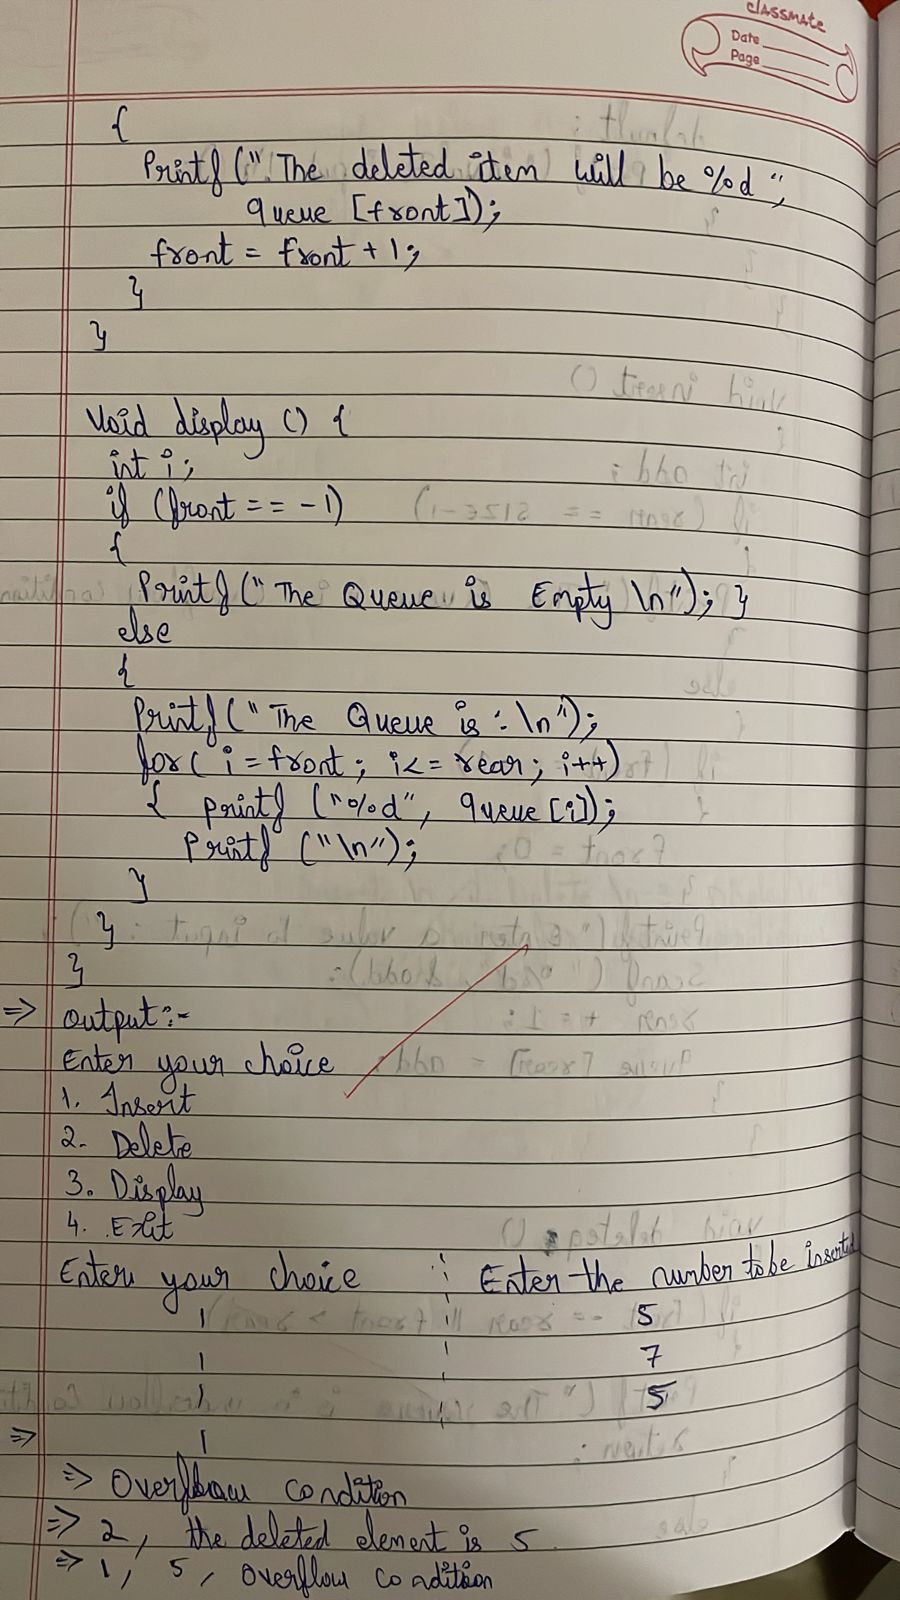 classmate
Date
Page
{
Printf (" The deleted item will be %d ",
queue [front]);
front = front + 1;
}
}
Void display () {
int i;
if (front == -1)
{
Printf (" The Queue is Empty \n"); }
else
{
Printf (" The Queue is : \n");
for( i = front ; i <= rear ; i++)
{ printf ("%d", queue [i]);
Printf ("\n");
}
}
}
=> output :-
Enter your choice
1. Insert
2. Delete
3. Display
4. Exit
Enter your choice Enter the number to be inserted
1 5
1 7
1 5
=> 1
=> Overflow condition
=> 2, the deleted element is 5
=> 1, 5, overflow condition